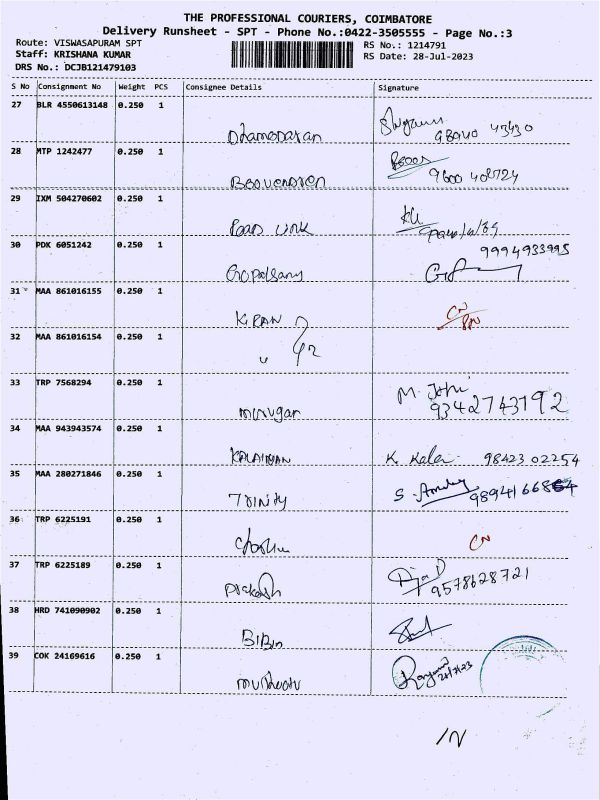 THE PROFESSIONAL COURIERS, COIMBATORE
Delivery Runsheet - SPT - Phone No.:0422-3505555 - Page No.:3
Route: VISWASAPURAM SPT
RS No.: 1214791
Staff: KRISHANA KUMAR
RS Date: 28-Jul-2023
DRS No.: DCJB121479103
S No Consignment No Weight PCS Consignee Details Signature
27 BLR 4550613148 0.250 1
Dhamodaran 98940 43430
28 MTP 1242477 0.250 1
9600 408724
29 IXM 504270602 0.250 1
Link
30 PDK 6051242 0.250 1
9994933995
Gopalsamy
31 MAA 861016155 0.250 1
KIRAN CN
32 MAA 861016154 0.250 1
33 TRP 7568294 0.250 1
Murugan M. 9342743192
34 MAA 943943574 0.250 1
KALAIVANI K. Kalai 98423 02254
35 MAA 280271846 0.250 1
Trinity S.
36 TRP 6225191 0.250 1
CN
37 TRP 6225189 0.250 1
Prakash 9578628721
38 HRD 741090902 0.250 1
BIBIN
39 COK 24169616 0.250 1